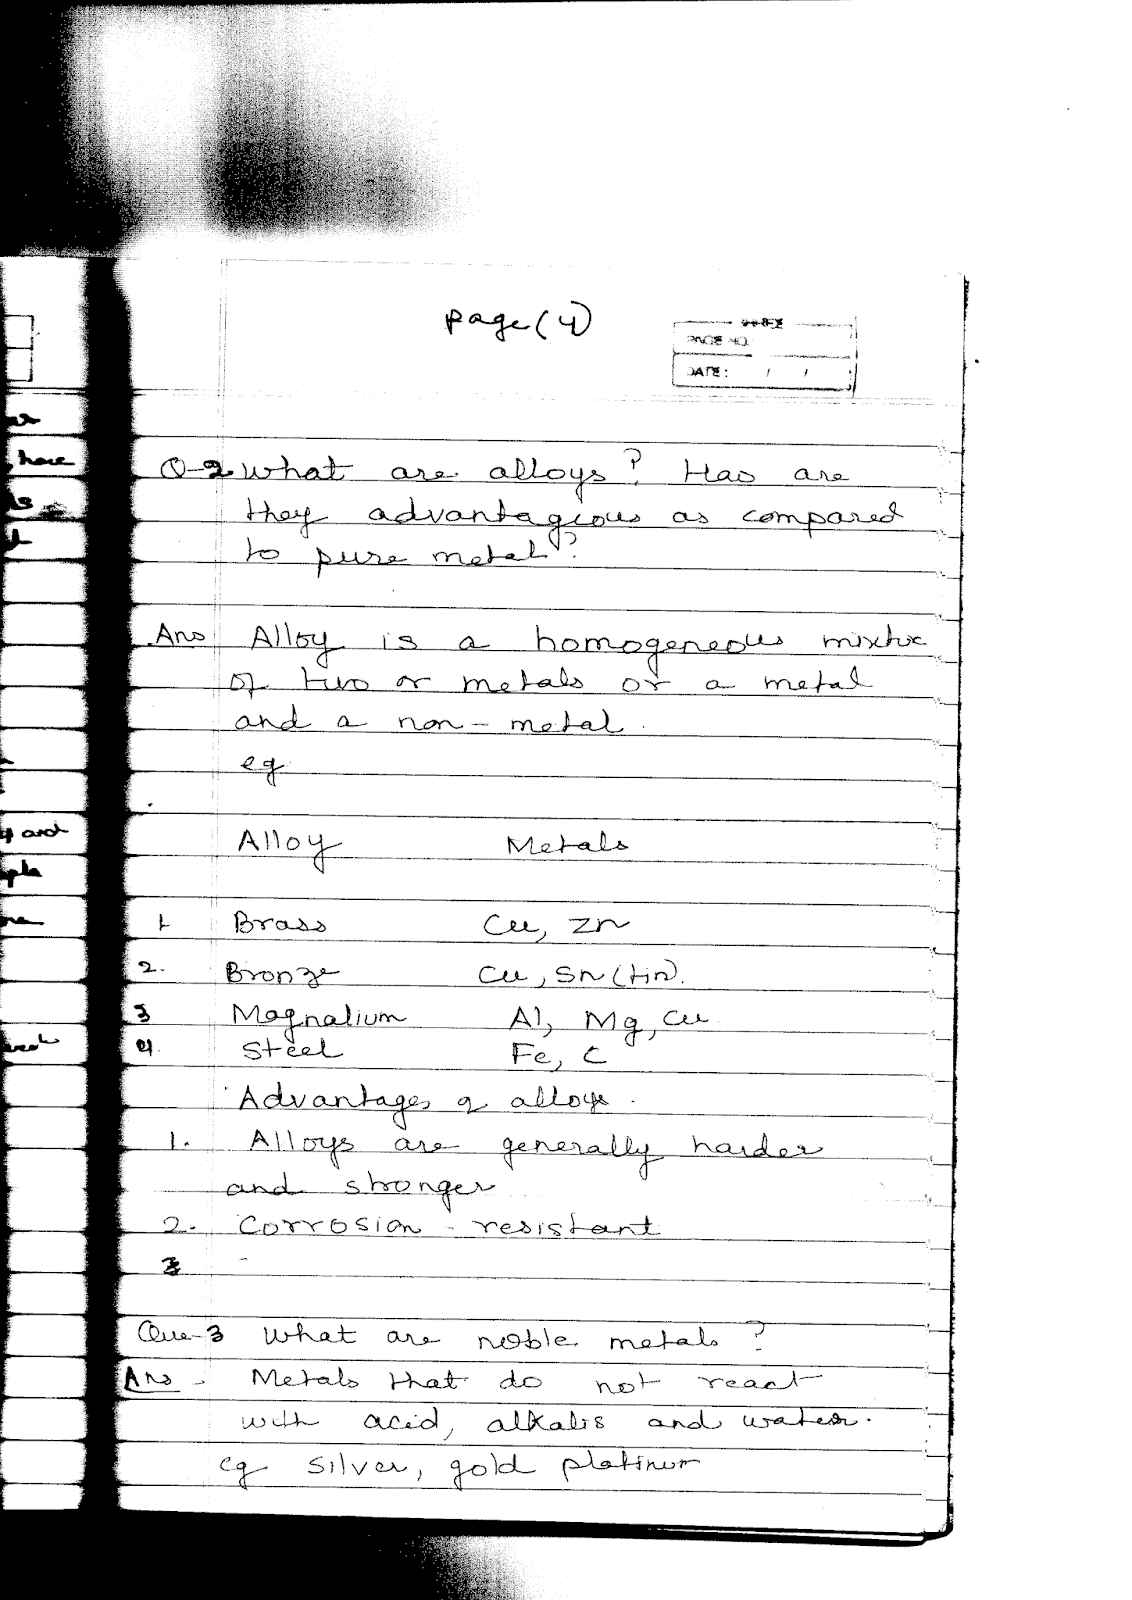 page (4)
PAGE NO.
DATE: / /
have
Q-2 What are alloys? Has are
they advantagious as compared
to pure metal?
Ans Alloy is a homogeneous mixture
of two or metals or a metal
and a non-metal.
eg
and
Alloy Metals
1 Brass Cu, Zn
2. Bronze Cu, Sn (tin).
3 Magnalium Al, Mg, Cu
4. Steel Fe, C
Advantages of alloys.
1. Alloys are generally harder
and stronger
2. Corrosion-resistant
3
Que-3 What are noble metals?
Ans - Metals that do not react
with acid, alkalis and water.
eg silver, gold platinum